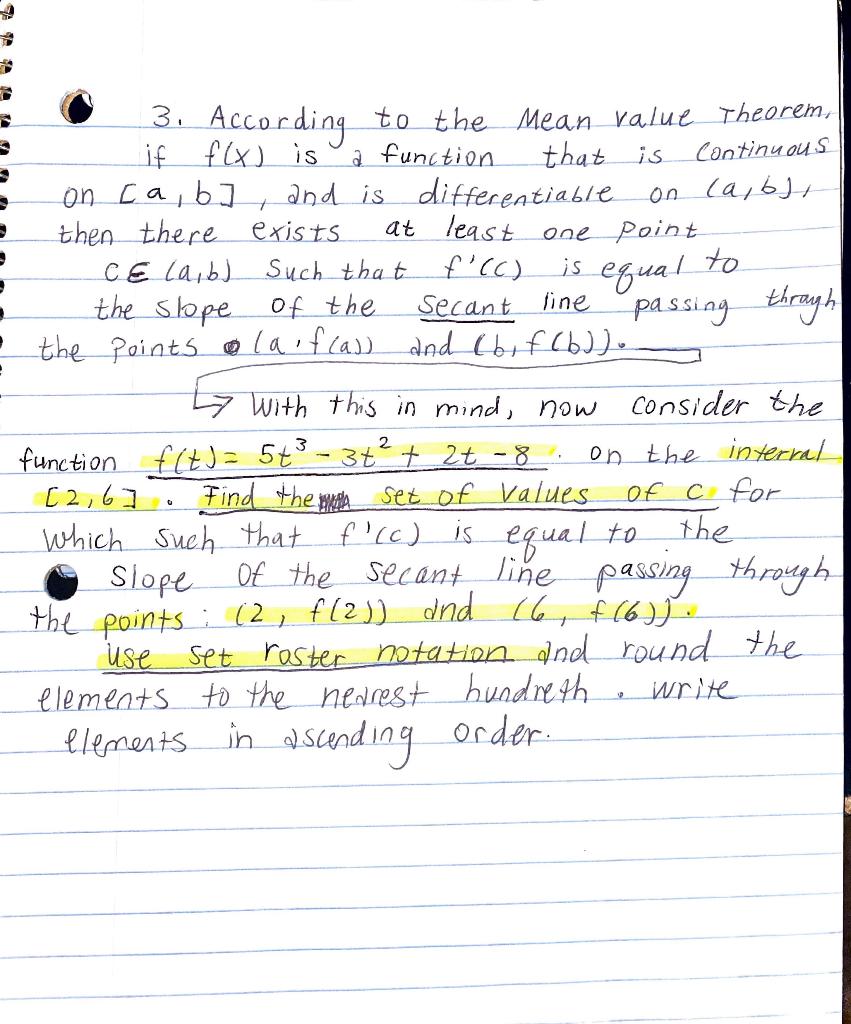 3. According to the Mean value Theorem,
if f(x) is a function that is continuous
on [a,b], and is differentiable on (a,b),
then there exists at least one point
C∈(a,b) such that f'(c) is equal to
the slope of the secant line passing through
the points (a, f(a)) and (b, f(b)).
↳ With this in mind, now consider the
function f(t) = 5t³ - 3t² + 2t - 8. on the interval
[2,6]. Find the set of values of c for
which such that f'(c) is equal to the
slope of the secant line passing through
the points: (2, f(2)) and (6, f(6)).
use set roster notation and round the
elements to the nearest hundreth. write
elements in ascending order.